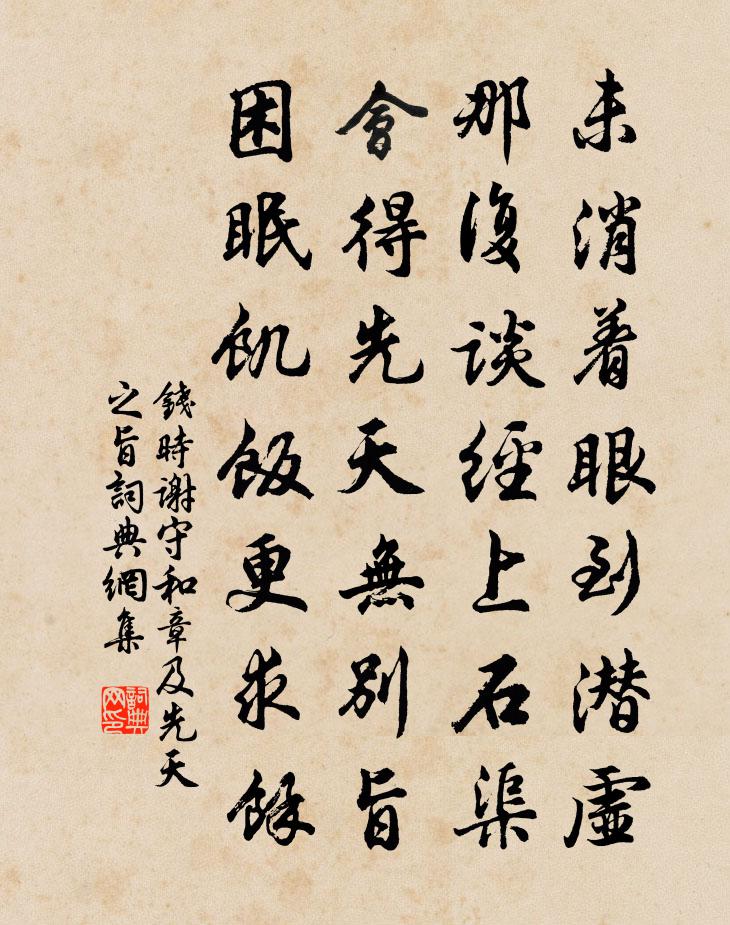 未消着眼到潛虛
那復談經上石渠
會得先天無別旨
困眠飢飯更求餘
錢時謝守和章及先天
之旨詞典網集
詞典網印